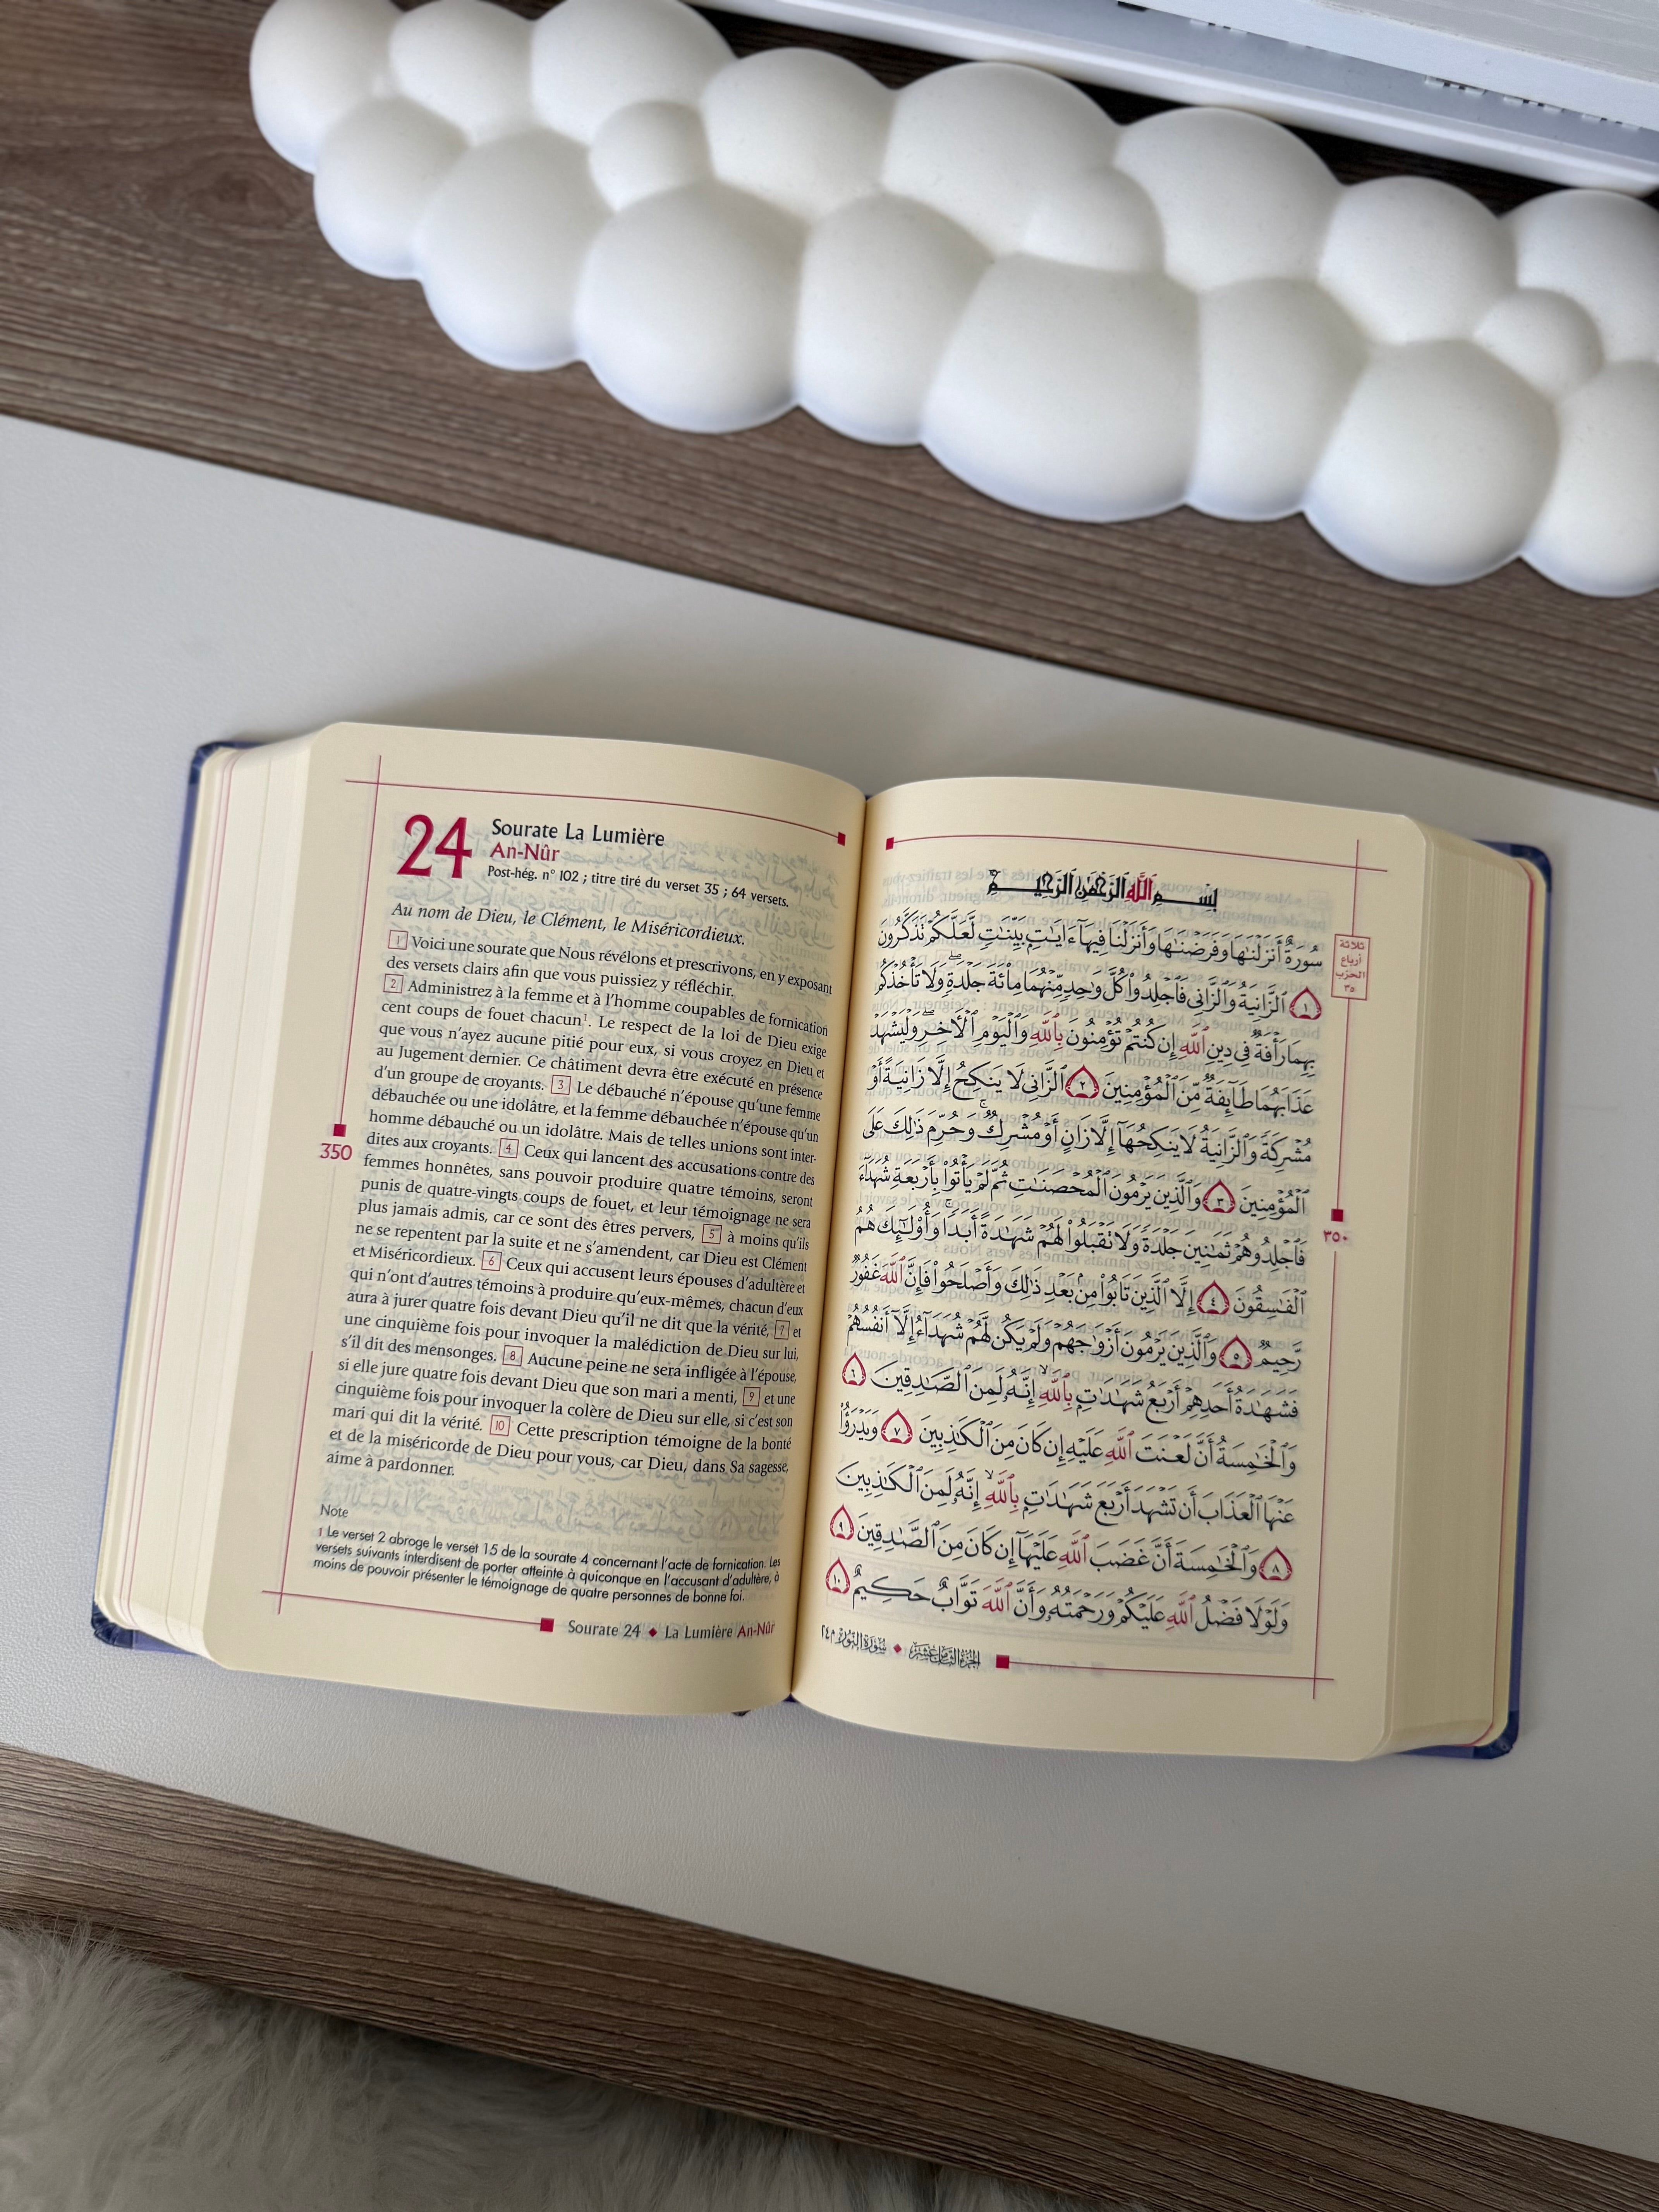 24
Sourate La Lumière
An-Nûr
Post-hég. n° 102 ; titre tiré du verset 35 ; 64 versets.
Au nom de Dieu, le Clément, le Miséricordieux.
1 Voici une sourate que Nous révélons et prescrivons, en y exposant
des versets clairs afin que vous puissiez y réfléchir.
2 Administrez à la femme et à l’homme coupables de fornication
cent coups de fouet chacun¹. Le respect de la loi de Dieu exige
que vous n’ayez aucune pitié pour eux, si vous croyez en Dieu et
au Jugement dernier. Ce châtiment devra être exécuté en présence
d’un groupe de croyants. 3 Le débauché n’épouse qu’une femme
débauchée ou une idolâtre, et la femme débauchée n’épouse qu’un
homme débauché ou un idolâtre. Mais de telles unions sont inter-
dites aux croyants. 4 Ceux qui lancent des accusations contre des
femmes honnêtes, sans pouvoir produire quatre témoins, seront
punis de quatre-vingts coups de fouet, et leur témoignage ne sera
plus jamais admis, car ce sont des êtres pervers, 5 à moins qu’ils
ne se repentent par la suite et ne s’amendent, car Dieu est Clément
et Miséricordieux. 6 Ceux qui accusent leurs épouses d’adultère et
qui n’ont d’autres témoins à produire qu’eux-mêmes, chacun d’eux
aura à jurer quatre fois devant Dieu qu’il ne dit que la vérité, 7 et
une cinquième fois pour invoquer la malédiction de Dieu sur lui,
s’il dit des mensonges. 8 Aucune peine ne sera infligée à l’épouse,
si elle jure quatre fois devant Dieu que son mari a menti, 9 et une
cinquième fois pour invoquer la colère de Dieu sur elle, si c’est son
mari qui dit la vérité. 10 Cette prescription témoigne de la bonté
et de la miséricorde de Dieu pour vous, car Dieu, dans Sa sagesse,
aime à pardonner.
350
Note
1 Le verset 2 abroge le verset 15 de la sourate 4 concernant l’acte de fornication. Les
versets suivants interdisent de porter atteinte à quiconque en l’accusant d’adultère, à
moins de pouvoir présenter le témoignage de quatre personnes de bonne foi.
Sourate 24 ◆ La Lumière An-Nûr
بِسْمِ اللَّهِ الرَّحْمَٰنِ الرَّحِيمِ
سُورَةٌ أَنزَلْنَٰهَا وَفَرَضْنَٰهَا وَأَنزَلْنَا فِيهَآ ءَايَٰتٍۭ بَيِّنَٰتٍ لَّعَلَّكُمْ تَذَكَّرُونَ
١ ٱلزَّانِيَةُ وَٱلزَّانِى فَٱجْلِدُوا۟ كُلَّ وَٰحِدٍ مِّنْهُمَا مِا۟ئَةَ جَلْدَةٍ ۖ وَلَا تَأْخُذْكُم
بِهِمَا رَأْفَةٌ فِى دِينِ ٱللَّهِ إِن كُنتُمْ تُؤْمِنُونَ بِٱللَّهِ وَٱلْيَوْمِ ٱلْءَاخِرِ ۖ وَلْيَشْهَدْ
عَذَابَهُمَا طَآئِفَةٌ مِّنَ ٱلْمُؤْمِنِينَ ٢ ٱلزَّانِى لَا يَنكِحُ إِلَّا زَانِيَةً أَوْ
مُشْرِكَةً وَٱلزَّانِيَةُ لَا يَنكِحُهَآ إِلَّا زَانٍ أَوْ مُشْرِكٌ ۚ وَحُرِّمَ ذَٰلِكَ عَلَى
ٱلْمُؤْمِنِينَ ٣ وَٱلَّذِينَ يَرْمُونَ ٱلْمُحْصَنَٰتِ ثُمَّ لَمْ يَأْتُوا۟ بِأَرْبَعَةِ شُهَدَآءَ
فَٱجْلِدُوهُمْ ثَمَٰنِينَ جَلْدَةً وَلَا تَقْبَلُوا۟ لَهُمْ شَهَٰدَةً أَبَدًا ۚ وَأُو۟لَٰٓئِكَ هُمُ
ٱلْفَٰسِقُونَ ٤ إِلَّا ٱلَّذِينَ تَابُوا۟ مِنۢ بَعْدِ ذَٰلِكَ وَأَصْلَحُوا۟ فَإِنَّ ٱللَّهَ غَفُورٌ
رَّحِيمٌ ٥ وَٱلَّذِينَ يَرْمُونَ أَزْوَٰجَهُمْ وَلَمْ يَكُن لَّهُمْ شُهَدَآءُ إِلَّآ أَنفُسُهُمْ
فَشَهَٰدَةُ أَحَدِهِمْ أَرْبَعُ شَهَٰدَٰتٍۭ بِٱللَّهِ ۙ إِنَّهُۥ لَمِنَ ٱلصَّٰدِقِينَ ٦
وَٱلْخَٰمِسَةُ أَنَّ لَعْنَتَ ٱللَّهِ عَلَيْهِ إِن كَانَ مِنَ ٱلْكَٰذِبِينَ ٧ وَيَدْرَؤُا۟
عَنْهَا ٱلْعَذَابَ أَن تَشْهَدَ أَرْبَعَ شَهَٰدَٰتٍۭ بِٱللَّهِ ۙ إِنَّهُۥ لَمِنَ ٱلْكَٰذِبِينَ
٨ وَٱلْخَٰمِسَةَ أَنَّ غَضَبَ ٱللَّهِ عَلَيْهَآ إِن كَانَ مِنَ ٱلصَّٰدِقِينَ ٩
وَلَوْلَا فَضْلُ ٱللَّهِ عَلَيْكُمْ وَرَحْمَتُهُۥ وَأَنَّ ٱللَّهَ تَوَّابٌ حَكِيمٌ ١٠
ثلاثة
أرباع
الحزب
٣٥
٣٥٠
الجزء الثامن عشر ◆ سورة النور م ٢٤